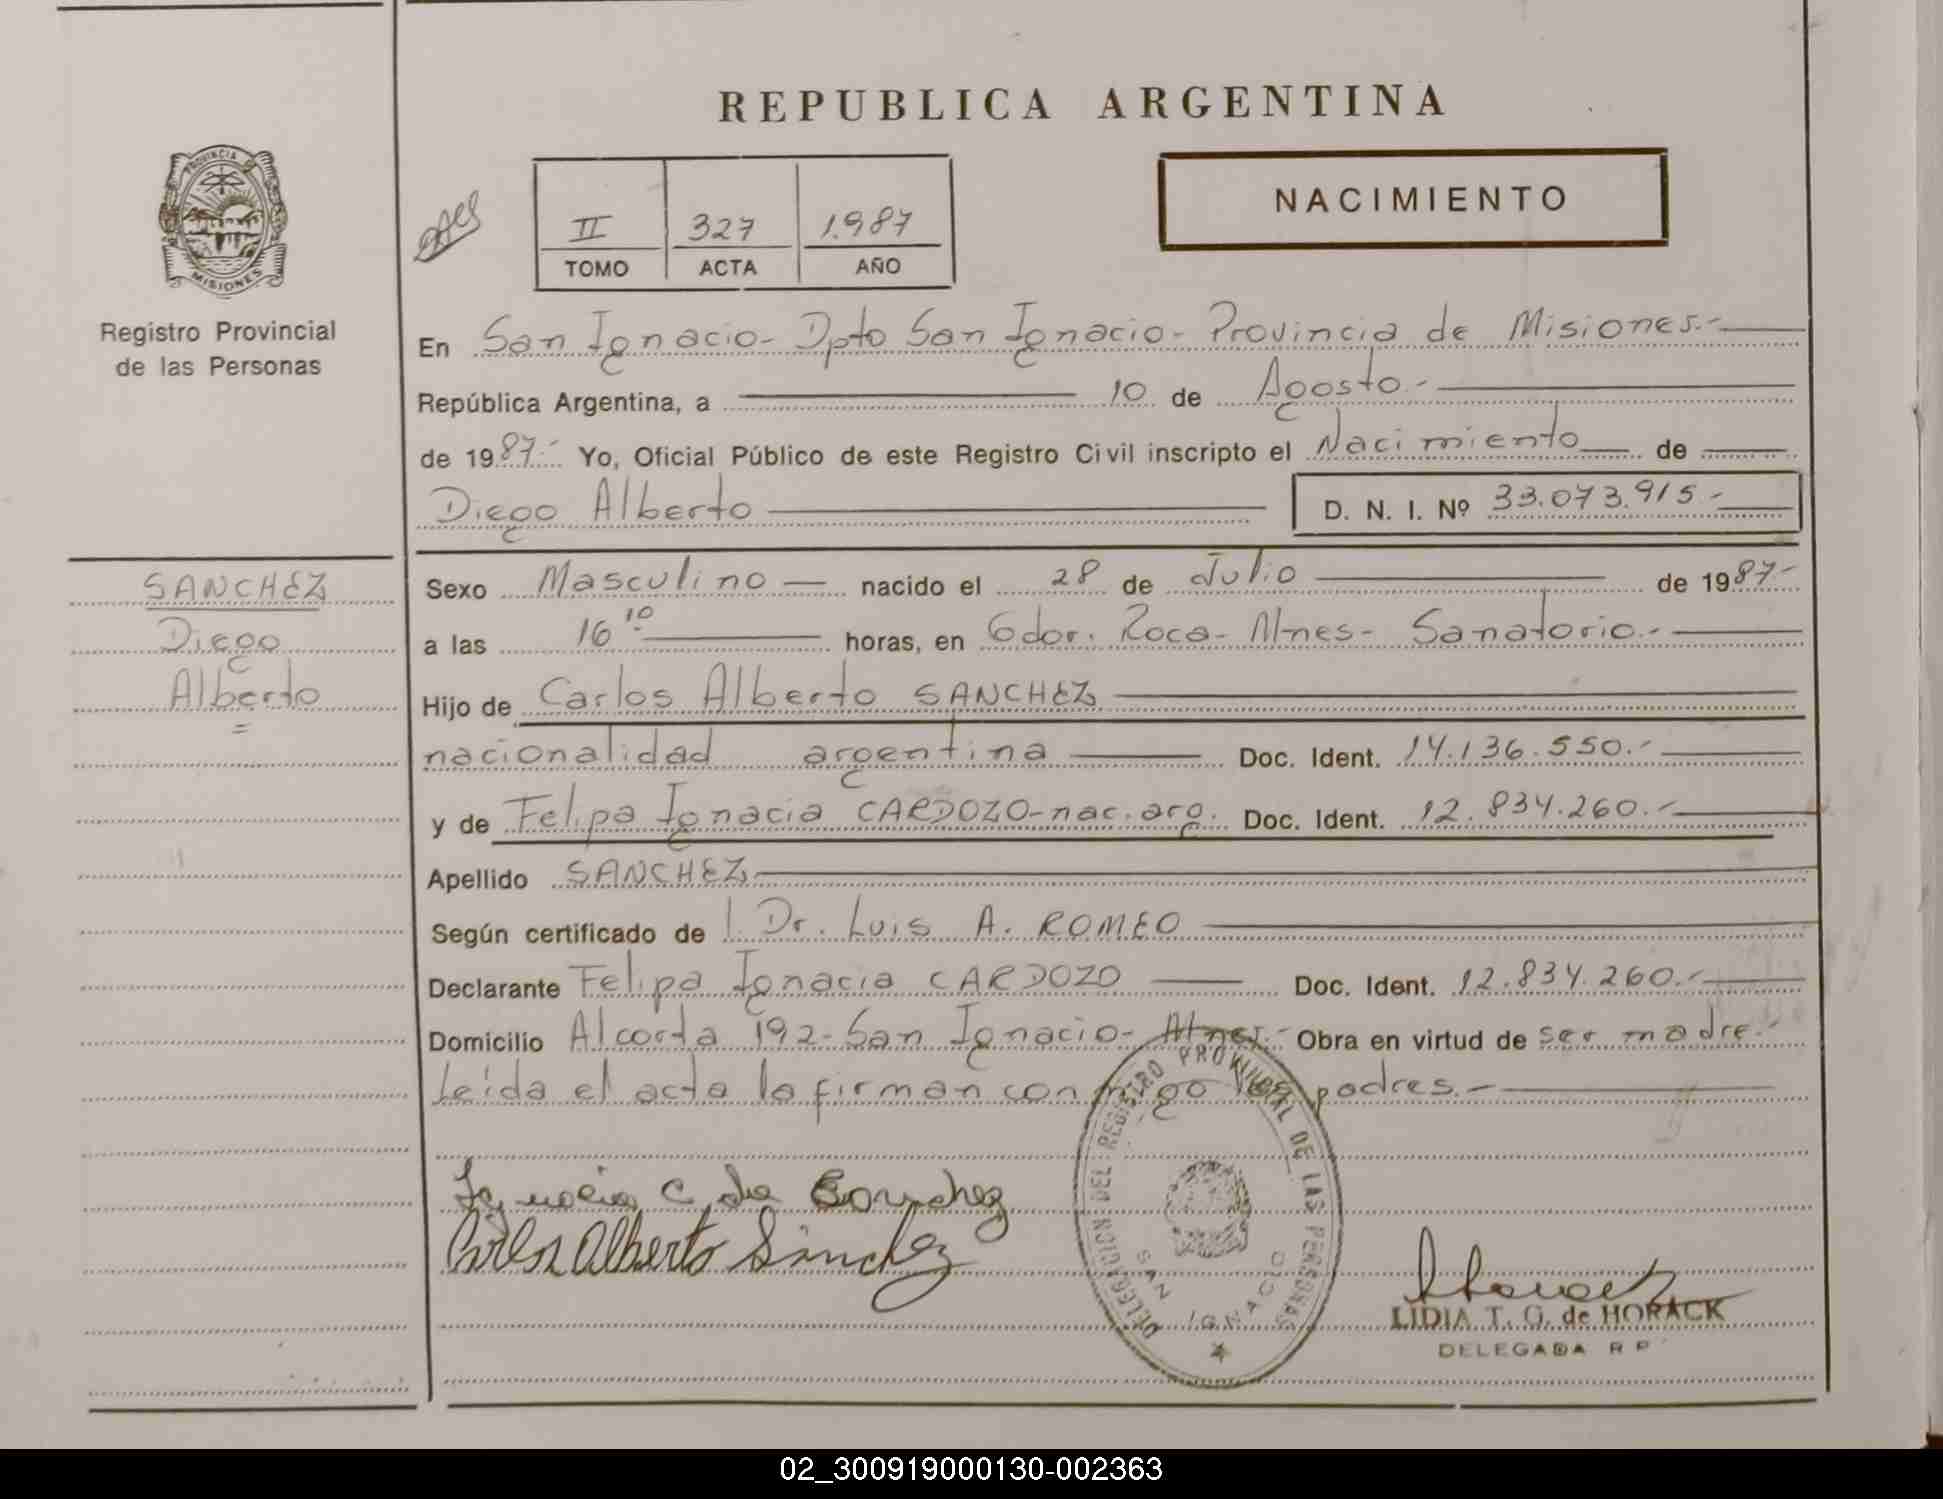 REPUBLICA ARGENTINA
PROVINCIA DE
MISIONES
Registro Provincial
de las Personas
II 327 1.987
TOMO ACTA AÑO
NACIMIENTO
En San Ignacio- Dpto San Ignacio- Provincia de Misiones.-
República Argentina, a 10 de Agosto.-
de 1987.- Yo, Oficial Público de este Registro Civil inscripto el Nacimiento de
Diego Alberto D. N. I. Nº 33.073.915.-
SANCHEZ
Diego
Alberto
=
Sexo Masculino nacido el 28 de Julio de 1987-
a las 16 10 horas, en Gdor. Roca- Mnes- Sanatorio.-
Hijo de Carlos Alberto SANCHEZ
nacionalidad argentina Doc. Ident. 14.136.550.-
y de Felipa Ignacia CARDOZO-nac. arg. Doc. Ident. 12.834.260.-
Apellido SANCHEZ
Según certificado de Dr. Luis A. ROMEO
Declarante Felipa Ignacia CARDOZO Doc. Ident. 12.834.260.-
Domicilio Alcorta 192- San Ignacio- Mnes.- Obra en virtud de ser madre.-
Leída el acta la firman conmigo los padres.-
Ignacia C de Sanchez
Carlos Alberto Sánchez
DELEGACION DEL REGISTRO PROVINCIAL DE LAS PERSONAS
SAN IGNACIO
LIDIA T. G. de HORACK
DELEGADA R P
02_300919000130-002363